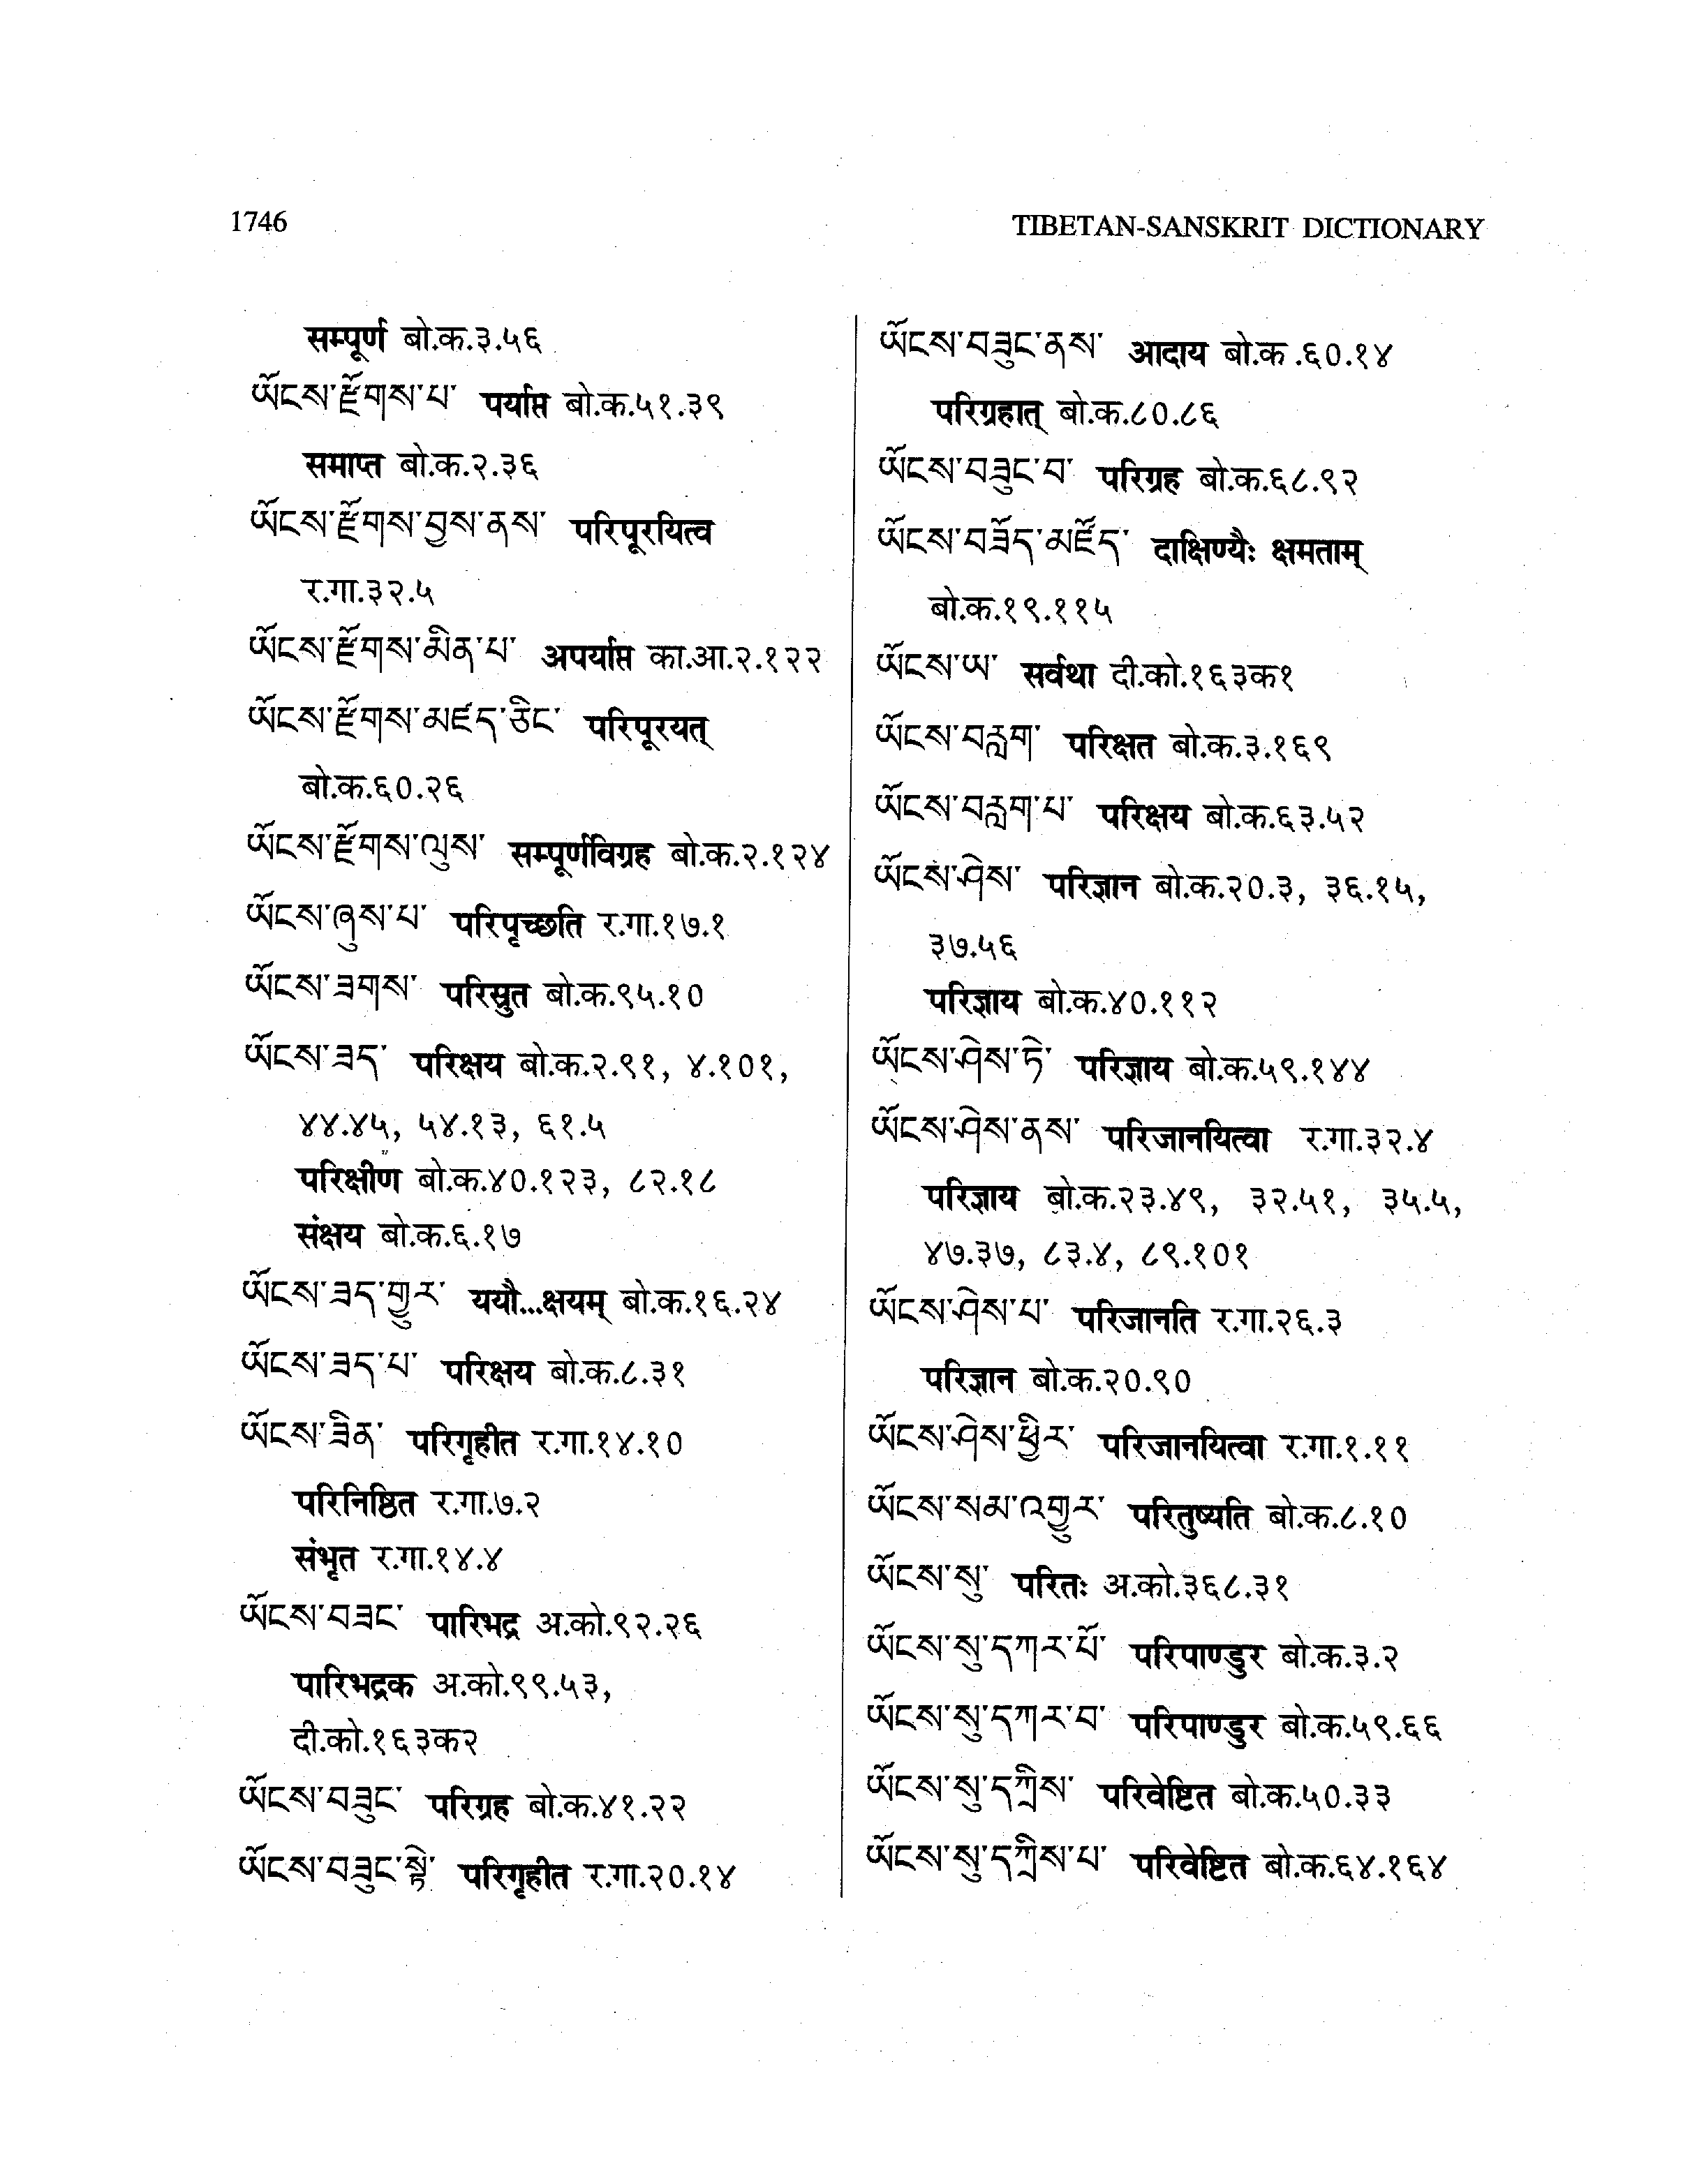 1746
TIBETAN-SANSKRIT DICTIONARY
सम्पूर्ण बो.क.३.५६
ཡོངས་རྫོགས་པ་ पर्याप्त बो.क.५१.३९
समाप्त बो.क.२.३६
ཡོངས་རྫོགས་བྱས་ནས་ परिपूरयित्व
र.गा.३२.५
ཡོངས་རྫོགས་མིན་པ་ अपर्याप्त का.आ.२.१२२
ཡོངས་རྫོགས་མཛད་ཅིང་ परिपूरयत्
बो.क.६०.२६
ཡོངས་རྫོགས་ལུས་ सम्पूर्णविग्रह बो.क.२.१२४
ཡོངས་ཞུས་པ་ परिपृच्छति र.गा.१७.१
ཡོངས་ཟགས་ परिस्रुत बो.क.९५.१०
ཡོངས་ཟད་ परिक्षय बो.क.२.९१, ४.१०१,
४४.४५, ५४.१३, ६१.५
परिक्षीण बो.क.४०.१२३, ८२.१८
संक्षय बो.क.६.१७
ཡོངས་ཟད་གྱུར་ ययौ...क्षयम् बो.क.१६.२४
ཡོངས་ཟད་པ་ परिक्षय बो.क.८.३१
ཡོངས་ཟིན་ परिगृहीत र.गा.१४.१०
परिनिष्ठित र.गा.७.२
संभृत र.गा.१४.४
ཡོངས་བཟང་ पारिभद्र अ.को.९२.२६
पारिभद्रक अ.को.९९.५३,
दी.को.१६३क२
ཡོངས་བཟུང་ परिग्रह बो.क.४१.२२
ཡོངས་བཟུང་སྟེ་ परिगृहीत र.गा.२०.१४
ཡོངས་བཟུང་ནས་ आदाय बो.क.६०.१४
परिग्रहात् बो.क.८०.८६
ཡོངས་བཟུང་བ་ परिग्रह बो.क.६८.९२
ཡོངས་བཟོད་མཛོད་ दाक्षिण्यैः क्षमताम्
बो.क.१९.११५
ཡོངས་ཡ་ सर्वथा दी.को.१६३क१
ཡོངས་བརླག་ परिक्षत बो.क.३.१६९
ཡོངས་བརླག་པ་ परिक्षय बो.क.६३.५२
ཡོངས་ཤེས་ परिज्ञान बो.क.२०.३, ३६.१५,
३७.५६
परिज्ञाय बो.क.४०.११२
ཡོངས་ཤེས་ཏེ་ परिज्ञाय बो.क.५९.१४४
ཡོངས་ཤེས་ནས་ परिजानयित्वा र.गा.३२.४
परिज्ञाय बो.क.२३.४९, ३२.५१, ३५.५,
४७.३७, ८३.४, ८९.१०१
ཡོངས་ཤེས་པ་ परिजानति र.गा.२६.३
परिज्ञान बो.क.२०.९०
ཡོངས་ཤེས་ཕྱིར་ परिजानयित्वा र.गा.१.११
ཡོངས་སམ་འགྱུར་ परितुष्यति बो.क.८.१०
ཡོངས་སུ་ परितः अ.को.३६८.३१
ཡོངས་སུ་དཀར་པོ་ परिपाण्डुर बो.क.३.२
ཡོངས་སུ་དཀར་བ་ परिपाण्डुर बो.क.५९.६६
ཡོངས་སུ་དཀྲིས་ परिवेष्टित बो.क.५०.३३
ཡོངས་སུ་དཀྲིས་པ་ परिवेष्टित बो.क.६४.१६४